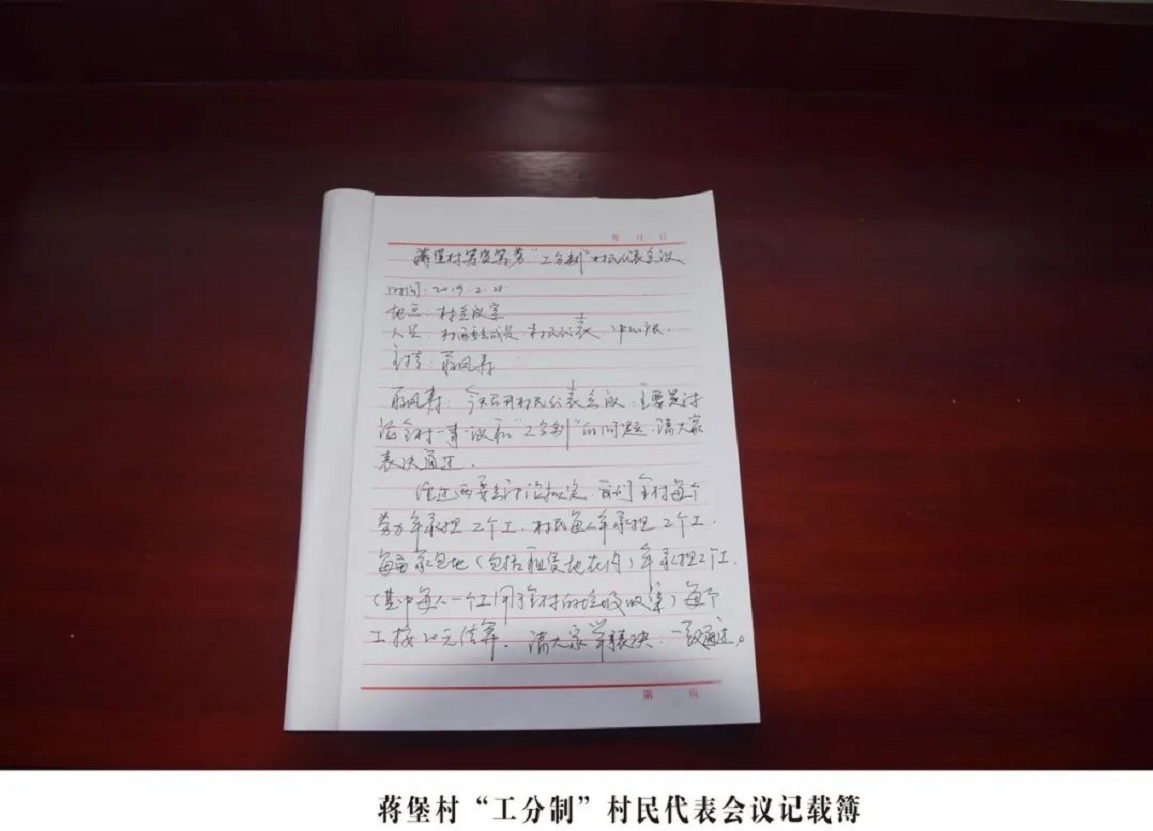 年 月 日
蒋堡村 "工分制"村民代表会议
时间：2019.2.21
地点：村会议室
人员：村两委成员、村民代表
主持：蒋凤寿
蒋凤寿：今天召开村民代表会议，主要是讨
论全村一事一议和"工分制"的问题，请大家
表决通过。
经过两委会讨论拟定，我们全村每个
劳力年承担2个工，村民每人年承担2个工，
每亩承包地（包括租赁地在内）年承担2个工
（其中每人一个工用于全村的垃圾收集）每个
工按20元结算。请大家举手表决，一致通过。
第 页
蒋堡村“工分制”村民代表会议记载簿